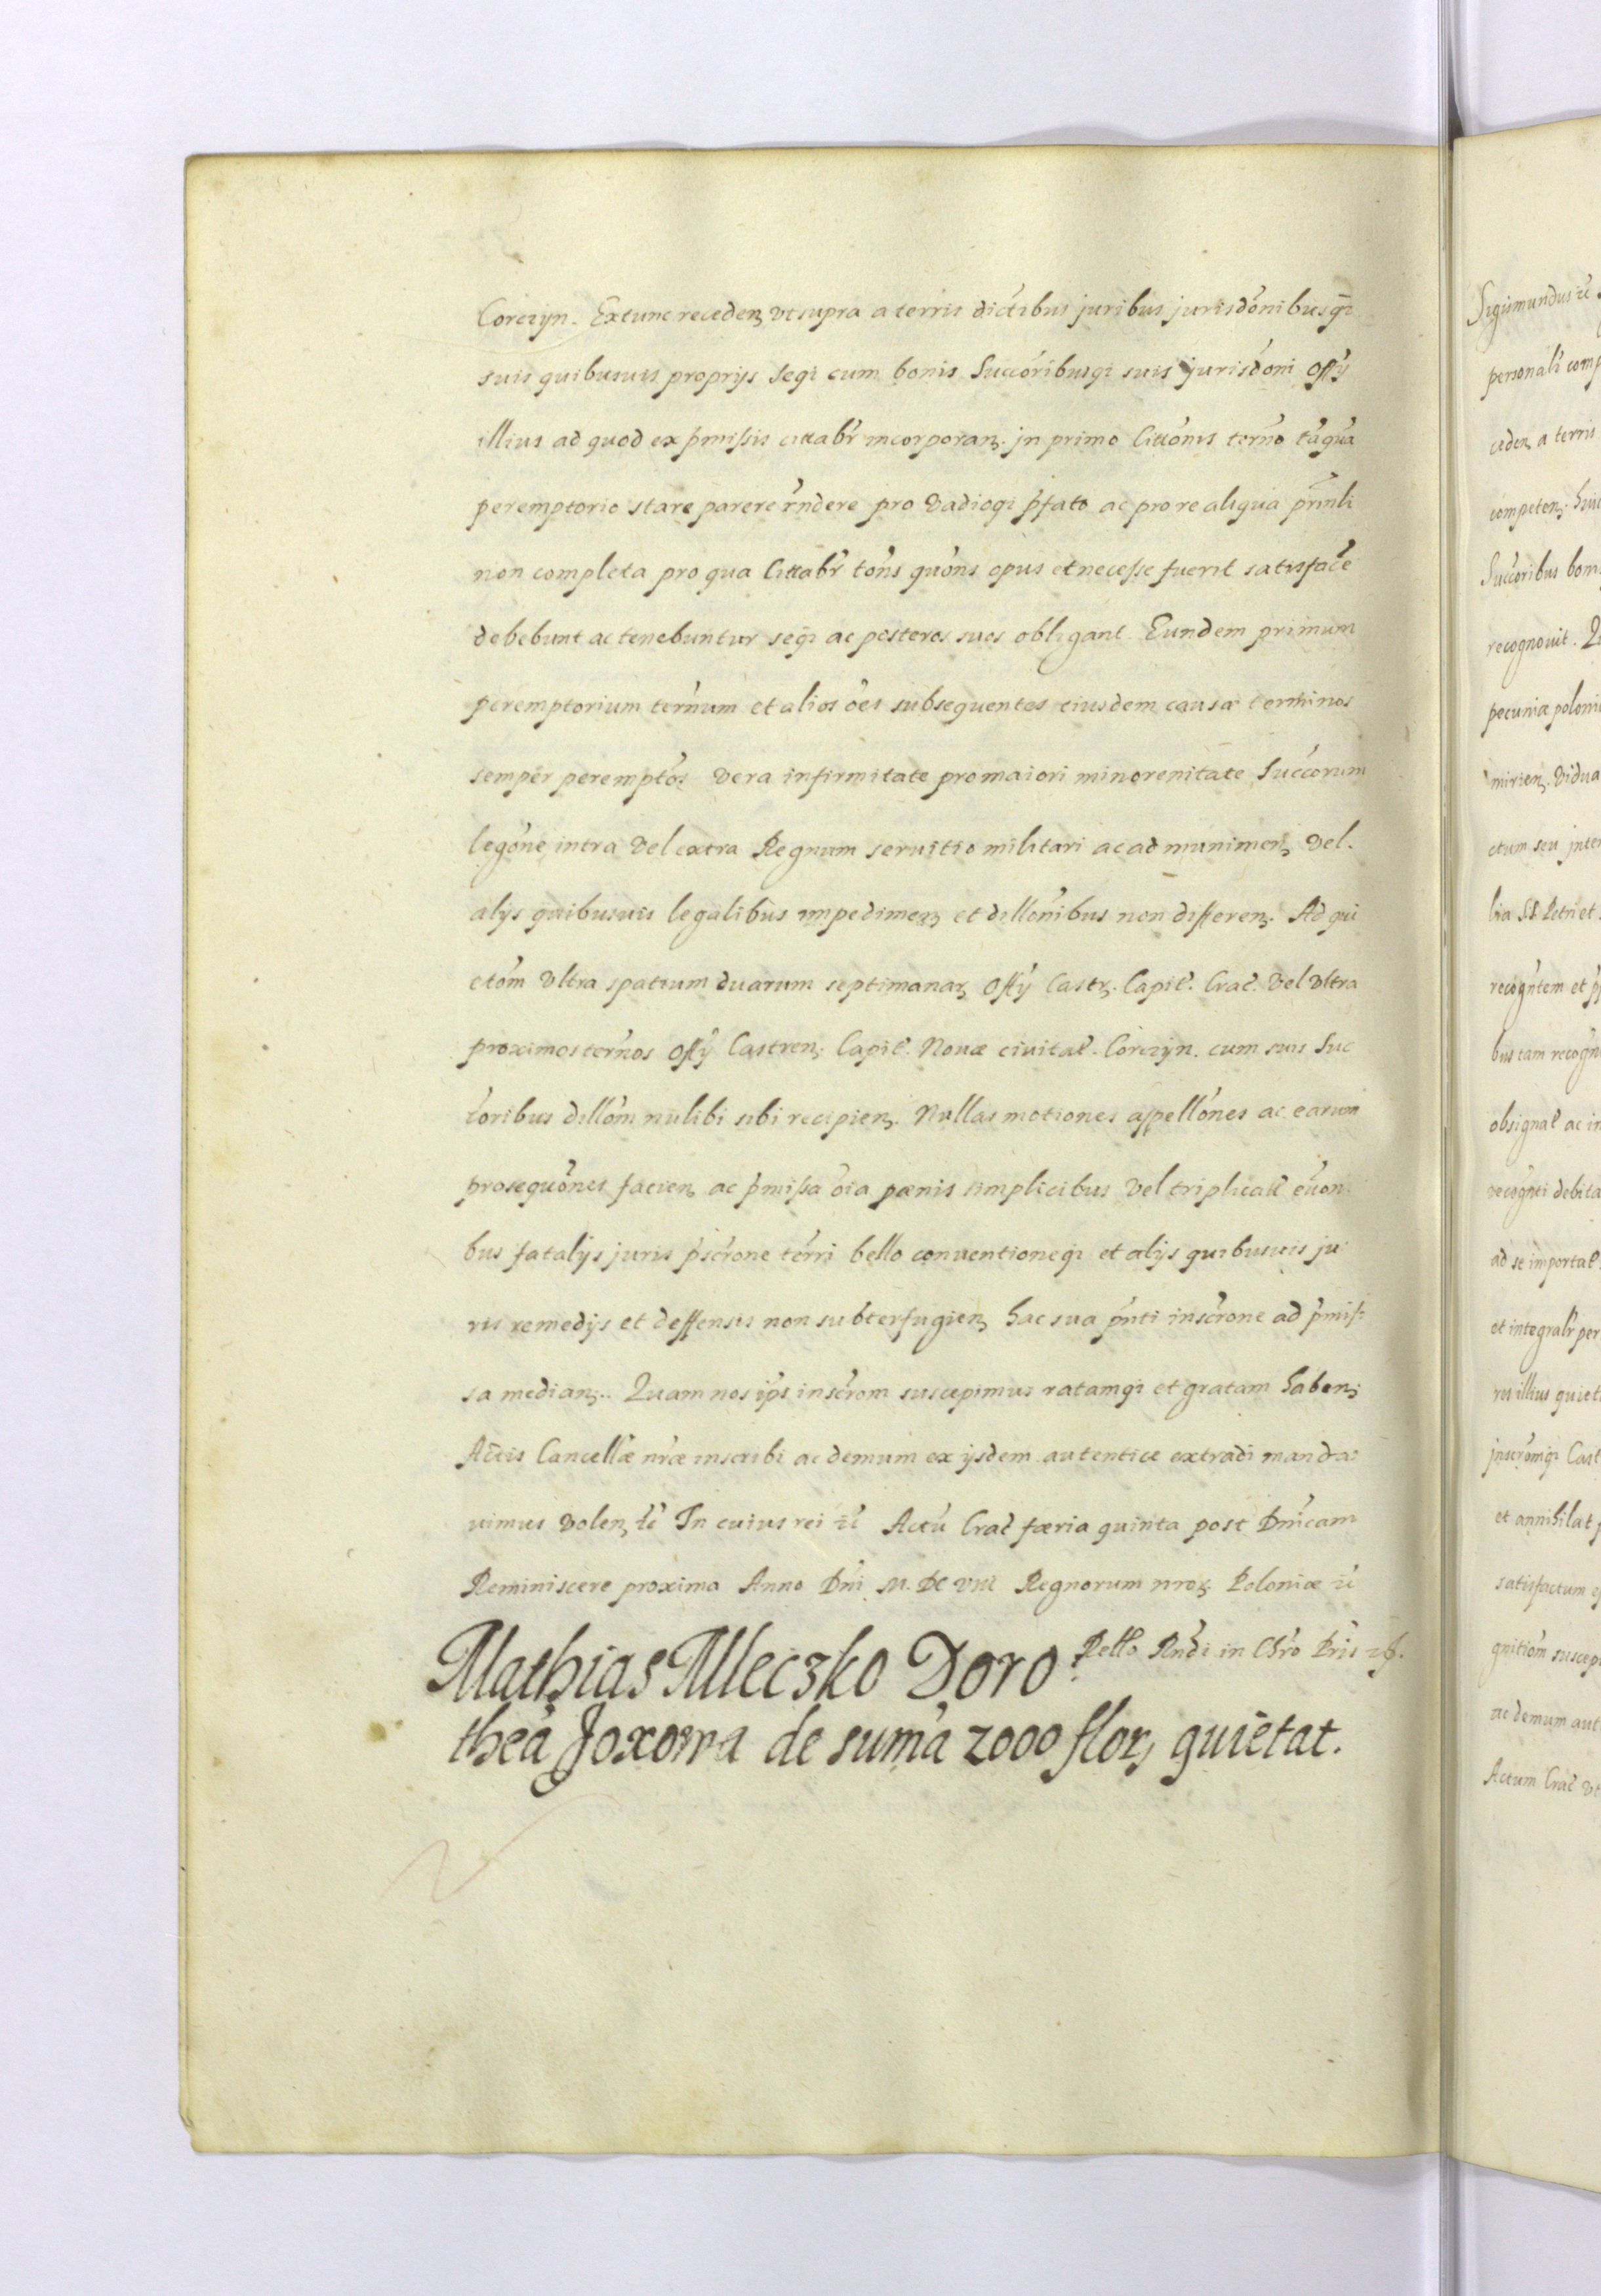 Corczyn. Extunc receden. vt supra a terris dictibus juribus jurisdonibusq3
suis quibusuis proprijs seqz cum bonis succoribusqz suis jurisdoni offy
illius ad quod ex pmissis cittabr incorporan. jn primo Cittonis termo taqua
peremptorio stare parere rndere pro vadioqz pfato ac pro re aliqua pmli
non completa pro qua Cittabr tons quons opus et necesse fuerit satisface
debebunt ac tenebuntur seqz ac posteros suos obligant. Eundem primum
peremptorium ternum et alios oes subsequentes eiusdem causæ terminos
semper perempto3 vera infirmitate pro maiori minorenitate succorum
legone intra vel extra Regnum seruitio militari ac ad munimen vel.
alijs quibusuis legalibus impedimen et dillonibus non differen. Ad qui
etom vltra spatium duarum septimanar offy Castr. Capit. Crac. vel vltra
proximos ternos offy Castren. Capit. Nouæ ciuitat. Corczyn. cum suis suc
coribus dillom nulibi sibi recipien. Nullas motiones appellones ac earum
prosequones facien ac pmissa oia pænis simplicibus vel triplicat euon
bus fatalijs juris pscrone terri bello conuentioneqz et alijs quibusuis ju
ris remedijs et deffensis non subterfugien hac sua pnti inscrone ad pmis:
sa median.. Quam nos ips inscrom suscepimus ratamqz et gratam haben
Actis Cancellæ nræ inscribi ac demum ex ijsdem autentice extradi manda:
uimus volen etc In cuius rei etc Actu Crac færia quinta post Dnicam
Reminiscere proxima Anno Dni M.DC VIII Regnorum nror Poloniæ etc
Rello Rndi in Chro Pris
Mathias Mleczko Doro:
thea Joxowa de suma 2000 flor, quietat.
Sigismundus etc
personali comp
ceden a terris
competen. huic
Succoribus bon
recognouit. Qu
pecuniæ poloni
mirien. vidua
ctum seu jnter
lia SS Petri et
recogntem et p
bus tam recogn
obsignat ac in
recognti debita
ad se importat
et integralr per
ros illius quiet
jnscromqz Cast
et annihilat p
satisfactum e
gnitiom suscep
ac demum aut
Actum Crac vt